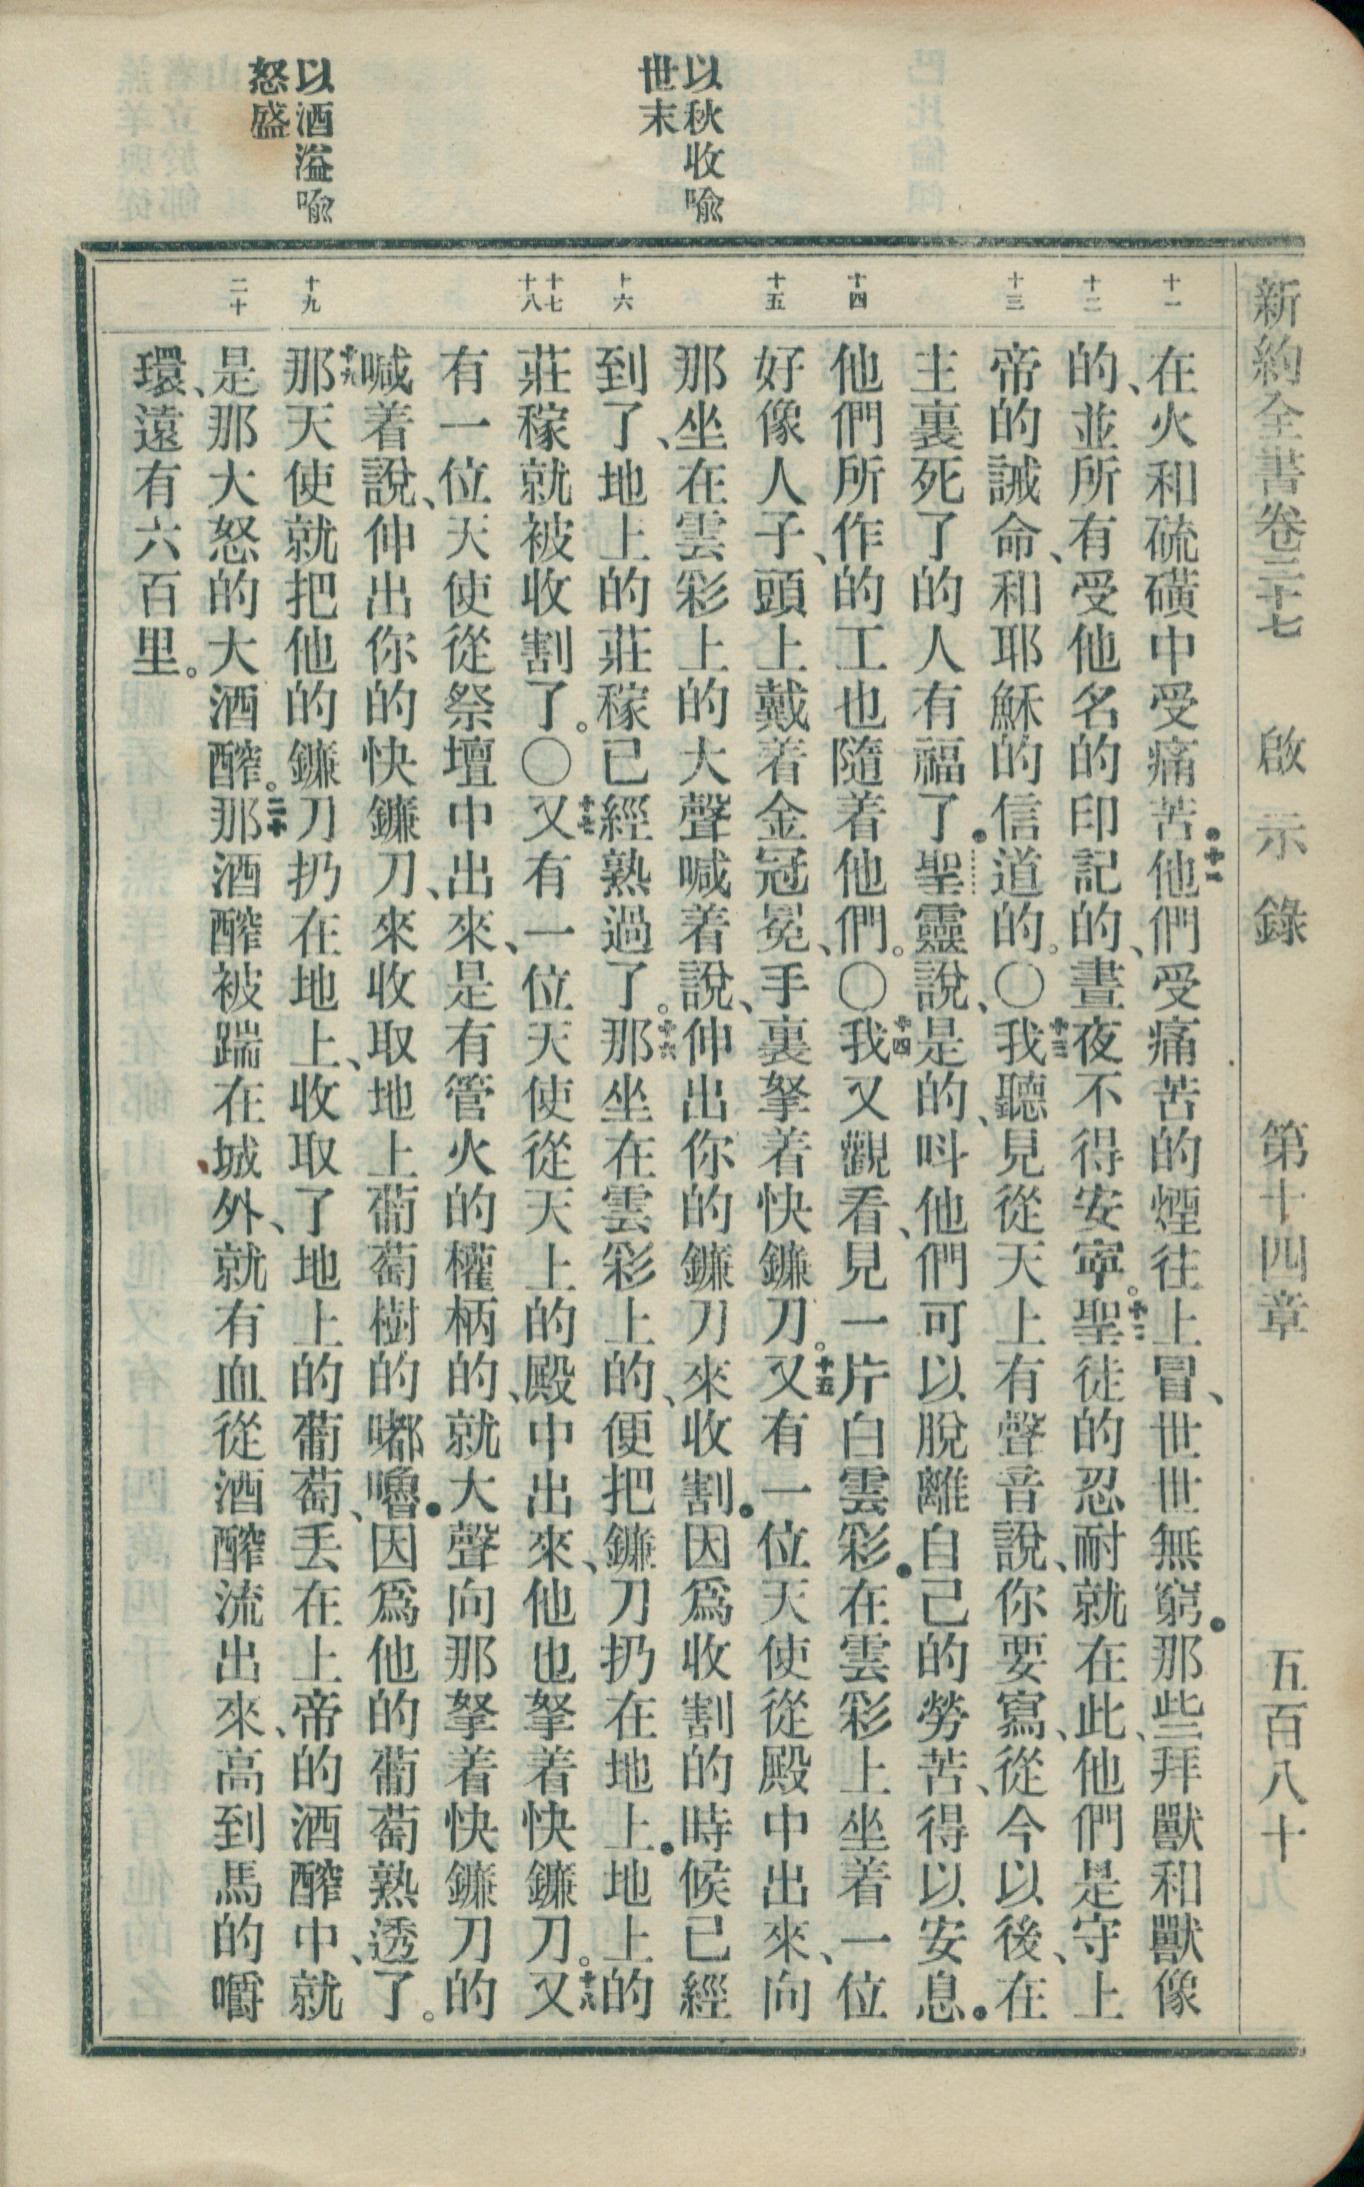 新約全書卷二十七　啟示錄　第十四章　五百八十
以秋收喩
世末
以酒溢喩
怒盛
十一
十二
十三
十四
十五
十六
十七
十八
十九
二十
在火和硫磺中受痛苦．十一他們受痛苦的煙往上冒、世世無窮．那些拜獸和獸像
的、並所有受他名的印記的、晝夜不得安寧。十二聖徒的忍耐就在此、他們是守上
帝的誡命、和耶穌的信道的。〇十三我聽見從天上有聲音說、你要寫、從今以後、在
主裏死了的人有福了．聖靈說、是的、呌他們可以脫離自己的勞苦、得以安息．
他們所作的工也隨着他們。〇十四我又觀看、見一片白雲彩．在雲彩上坐着一位
好像人子、頭上戴着金冠冕、手裏拏着快鐮刀。十五又有一位天使從殿中出來、向
那坐在雲彩上的大聲喊着說、伸出你的鐮刀來收割．因爲收割的時候已經
到了、地上的莊稼已經熟過了。十六那坐在雲彩上的、便把鐮刀扔在地上．地上的
莊稼就被收割了。〇十七又有一位天使從天上的殿中出來、他也拏着快鐮刀。十八又
有一位天使從祭壇中出來、是有管火的權柄的、就大聲向那拏着快鐮刀的
喊着說、伸出你的快鐮刀、來收取地上葡萄樹的嘟嚕．因爲他的葡萄熟透了。
十九那天使就把他的鐮刀扔在地上、收取了地上的葡萄、丟在上帝的酒醡中、就
是那大怒的大酒醡。二十那酒醡被踹在城外、就有血從酒醡流出來、高到馬的嚼
環、遠有六百里。